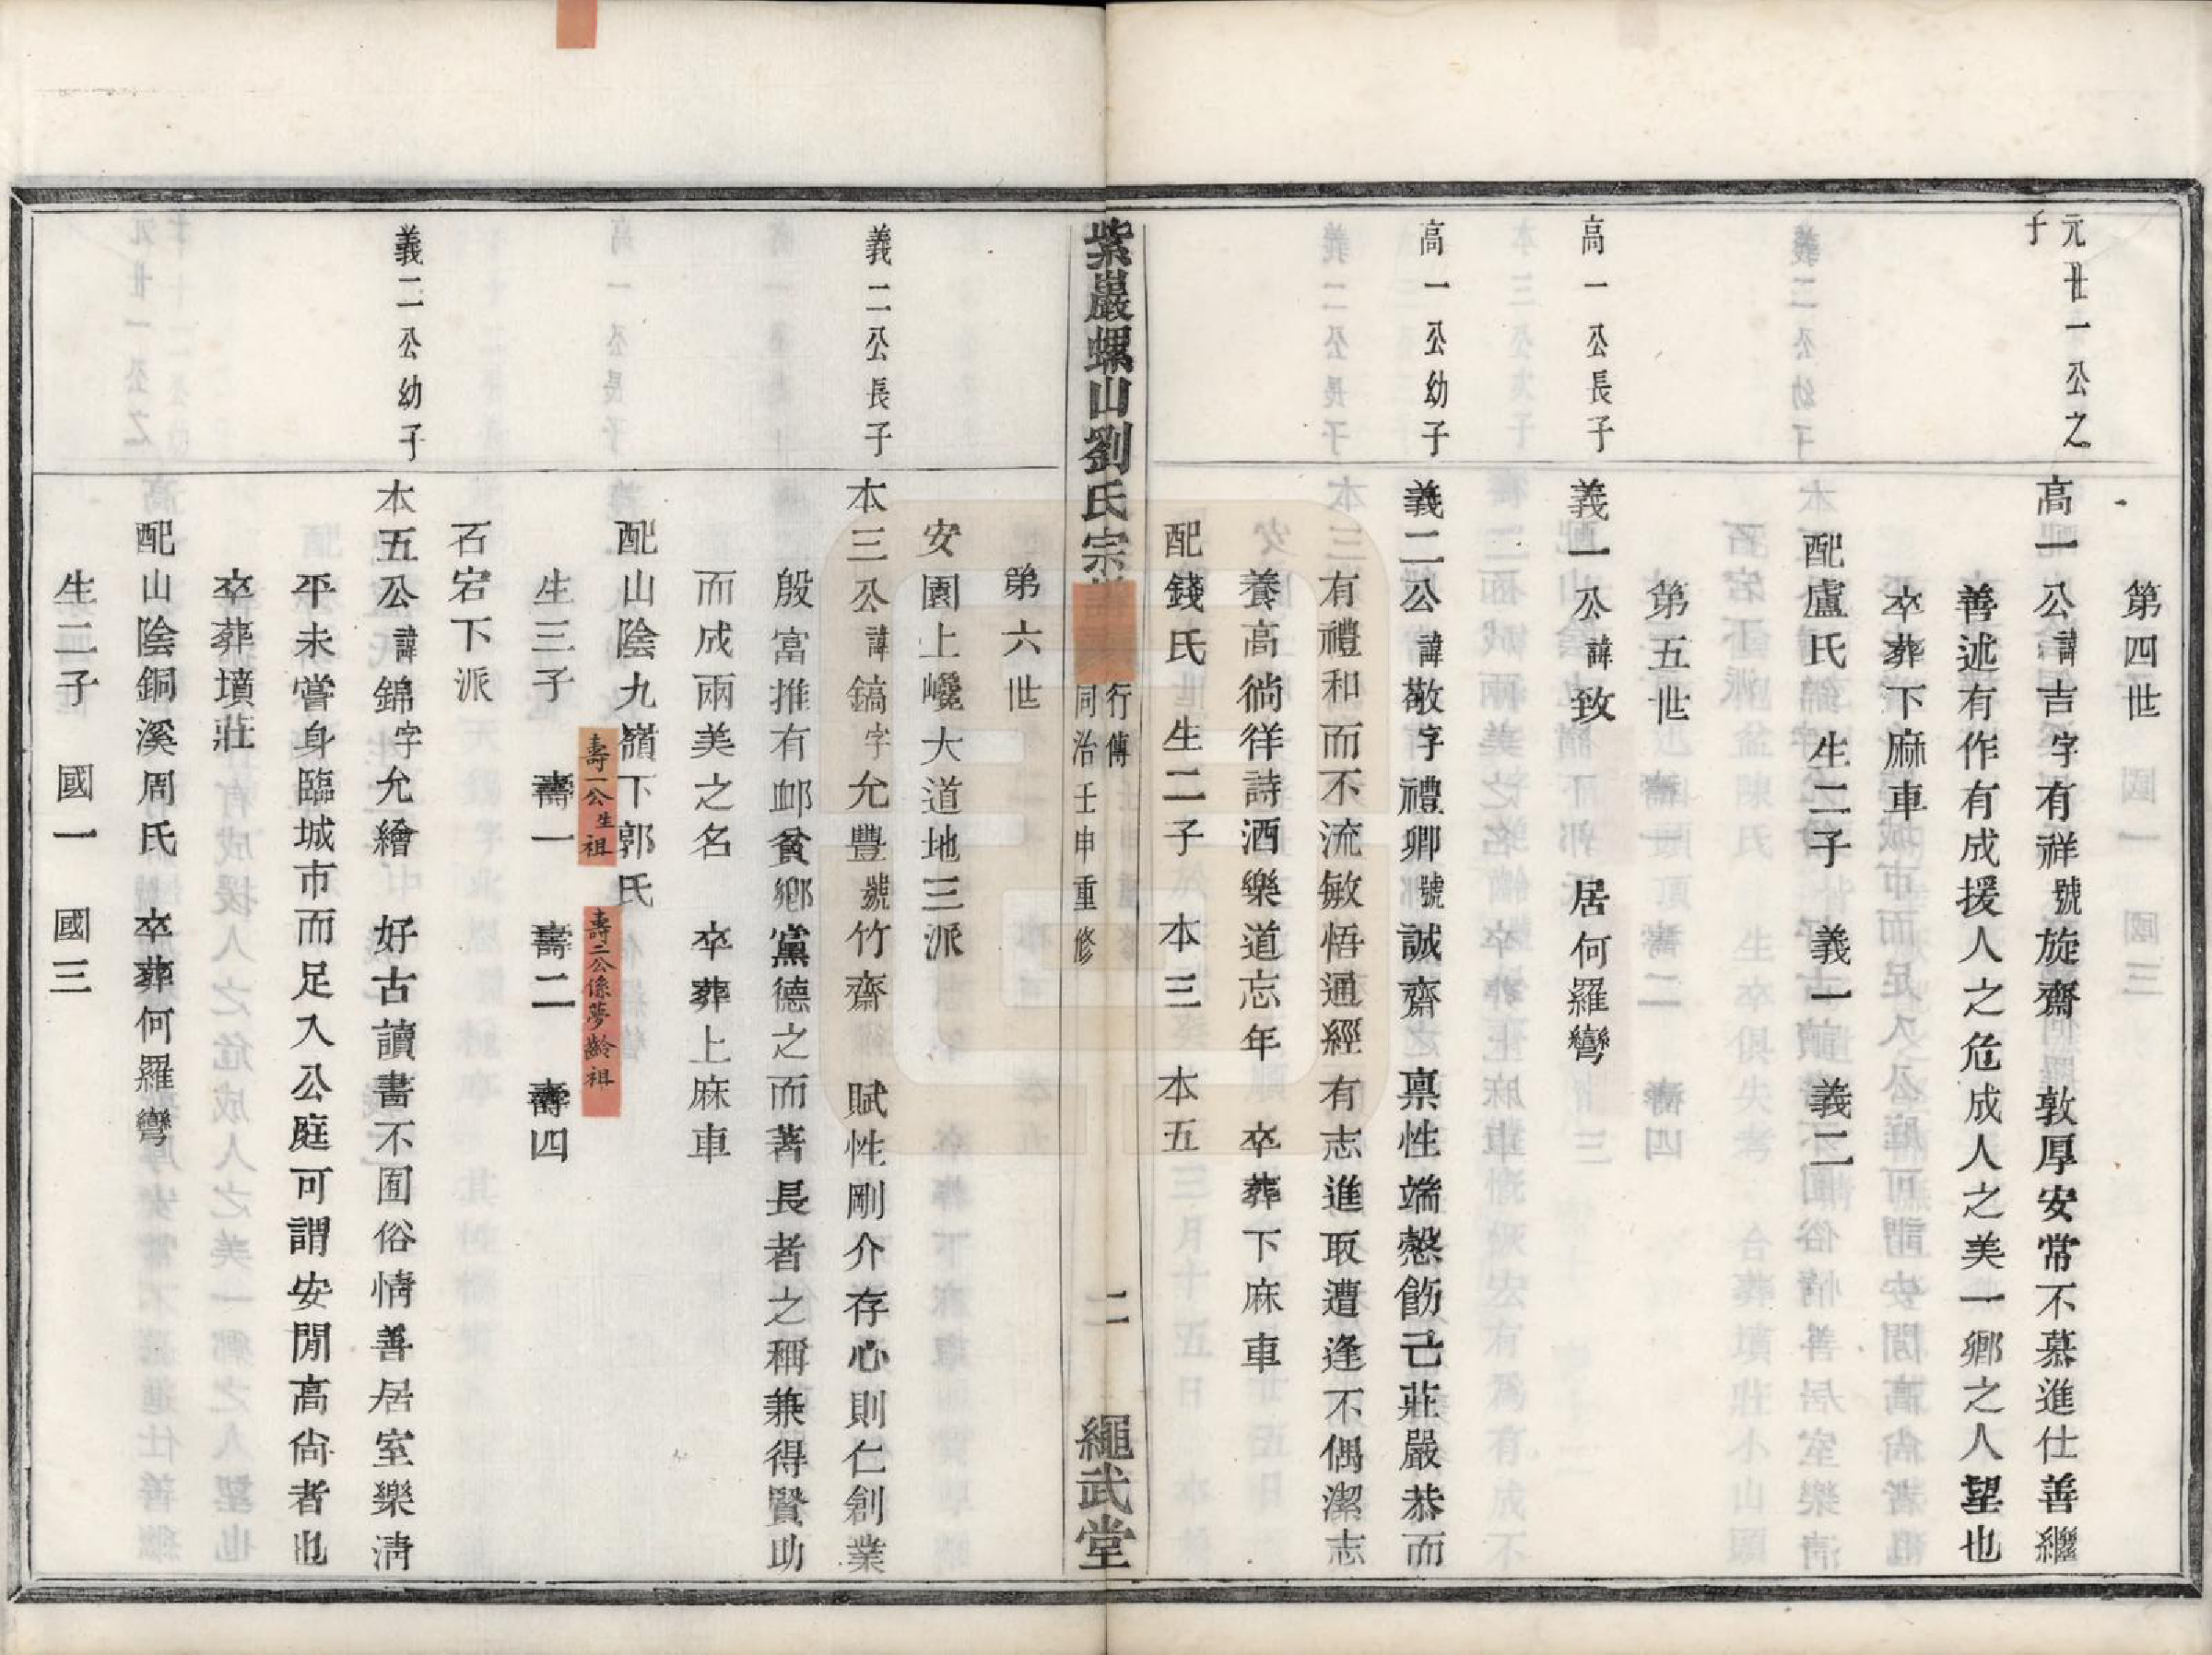 第四世
元廿一公之
子
高一公諱吉字有祥號旋齋 敦厚安常不慕進仕善繼
善述有作有成援人之危成人之美一鄉之人望也
卒葬下麻車
配盧氏 生二子 義一 義二
第五世
高一公長子
義一公諱致 居何羅彎
高一公幼子
義二公諱敬字禮卿號誠齋 禀性端慤飭己莊嚴恭而
有禮和而不流敏悟通經有志進取遭逢不偶潔志
養高徜徉詩酒樂道忘年 卒葬下麻車
配錢氏 生二子 本三 本五
紫巖螺山劉氏宗
行傳
同治壬申重修
二
繩武堂
第六世
安園上巉大道地三派
義二公長子
本三公諱鎬字允豐號竹齋 賦性剛介存心則仁創業
殷富推有䘏貧鄉黨德之而著長者之稱兼得賢助
而成兩美之名 卒葬上麻車
配山陰九嶺下郭氏
壽一公生祖
壽二公係夢齡祖
生三子 壽一 壽二 壽四
石宕下派
義二公幼子
本五公諱錦字允繪 好古讀書不囿俗情善居室樂清
平未嘗身臨城市而足入公庭可謂安閒高尚者也
卒葬墳莊
配山陰銅溪周氏 卒葬何羅彎
生二子 國一 國三